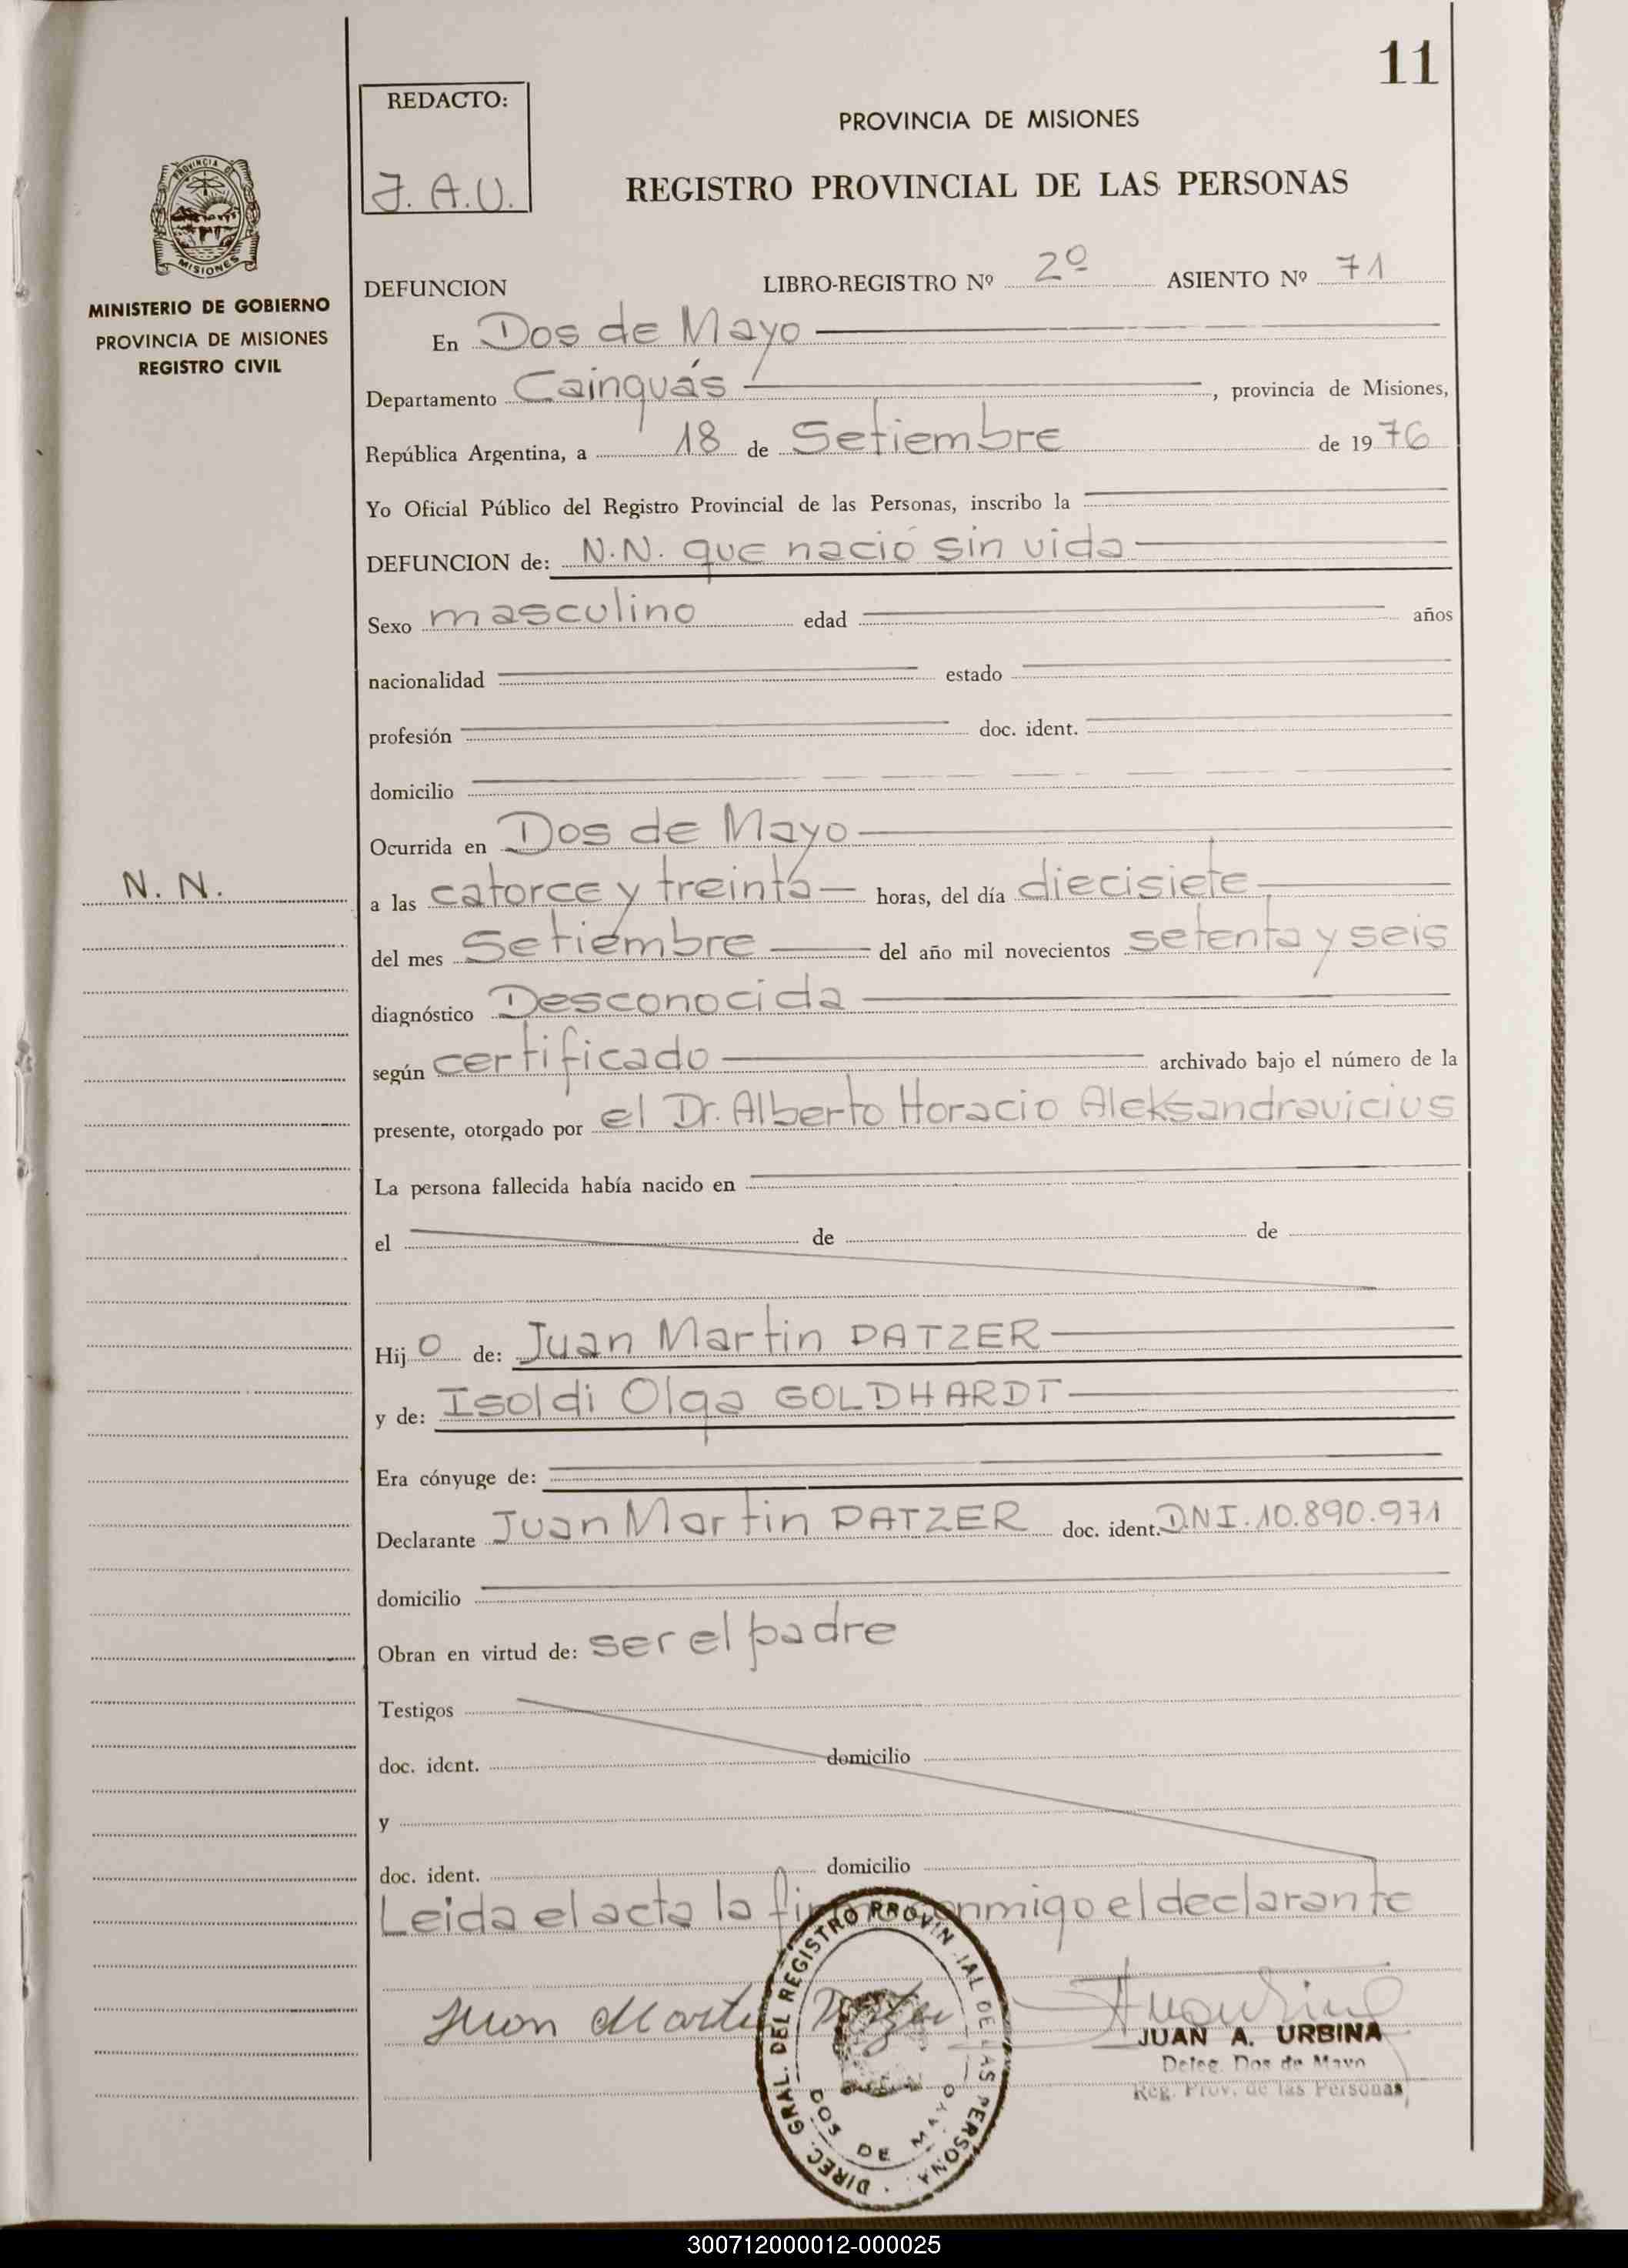 11
REDACTO:
J. A. U.
PROVINCIA DE MISIONES
REGISTRO PROVINCIAL DE LAS PERSONAS
PROVINCIA DE
MISIONES
MINISTERIO DE GOBIERNO
PROVINCIA DE MISIONES
REGISTRO CIVIL
DEFUNCION LIBRO-REGISTRO Nº 2º ASIENTO Nº 71
En Dos de Mayo
Departamento Cainguás, provincia de Misiones,
República Argentina, a 18 de Setiembre de 1976
Yo Oficial Público del Registro Provincial de las Personas, inscribo la
DEFUNCION de: N.N. que nació sin vida
Sexo masculino edad años
nacionalidad estado
profesión doc. ident.
domicilio
Ocurrida en Dos de Mayo
N. N.
a las catorce y treinta horas, del día diecisiete
del mes Setiembre del año mil novecientos setenta y seis
diagnóstico Desconocida
según certificado archivado bajo el número de la
presente, otorgado por el Dr. Alberto Horacio Aleksandravicius
La persona fallecida había nacido en
el de de
Hijo de: Juan Martin DATZER
y de: Isoldi Olga GOLDHARDT
Era cónyuge de:
Declarante Juan Martin DATZER doc. ident. D.N.I. 10.890.971
domicilio
Obran en virtud de: ser el padre
Testigos
doc. ident. domicilio
y
doc. ident. domicilio
Leida el acta la conmigo el declarante
Juan Martin Datzer
JUAN A. URBINA
Deleg. Dos de Mayo
Reg. Prov. de las Personas
DIREC. GRAL. DEL REGISTRO PROVINCIAL DE LAS PERSONA
DOS DE MAYO
300712000012-000025